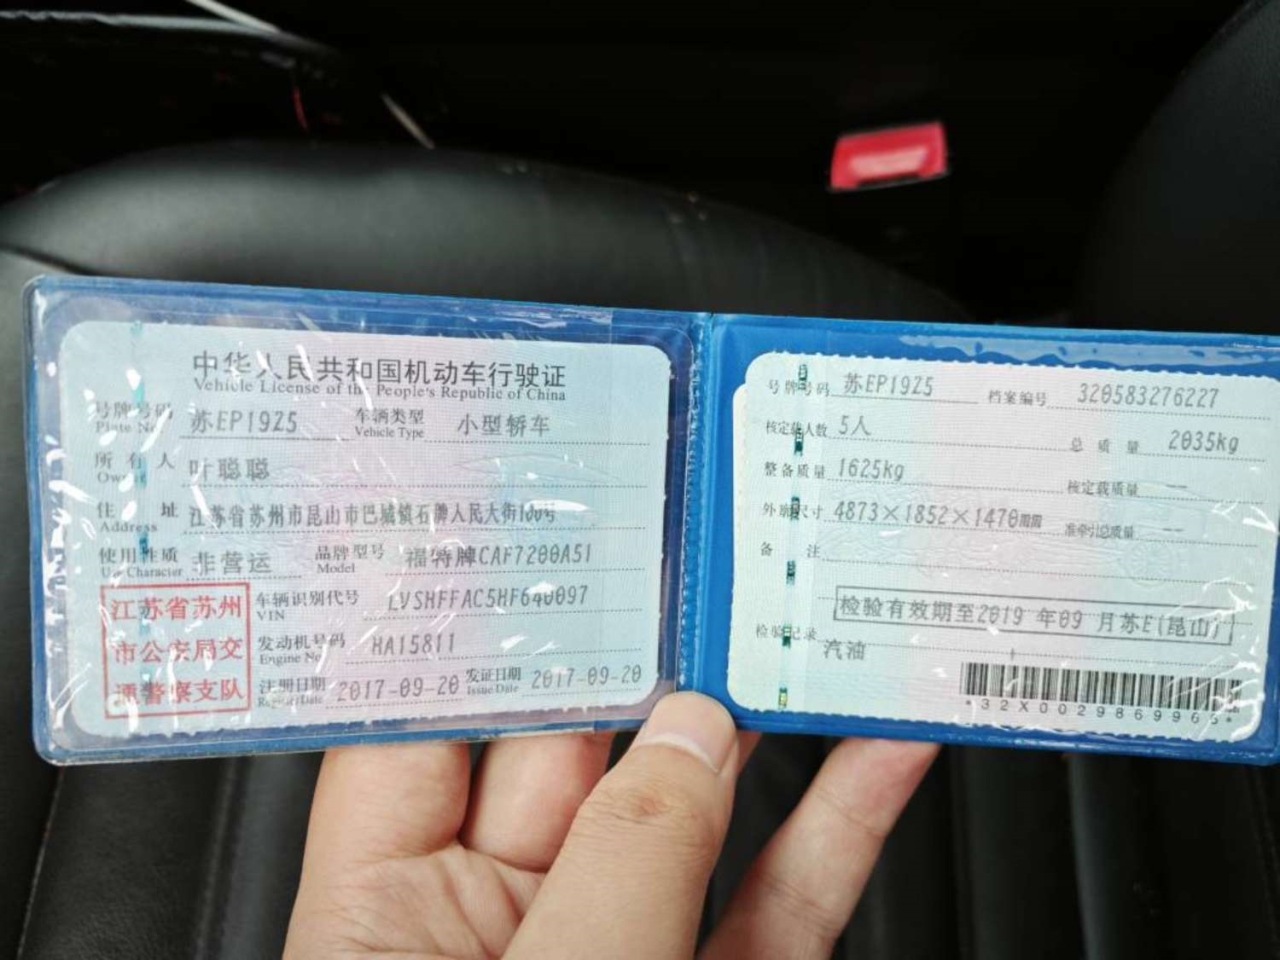 中华人民共和国机动车行驶证
Vehicle License of the People's Republic of China
号牌号码 Plate No. 苏EP19Z5 车辆类型 Vehicle Type 小型轿车
所有人 Owner 叶聪聪
住址 Address 江苏省苏州市昆山市巴城镇石牌人民大街100号
使用性质 Use Character 非营运 品牌型号 Model 福特牌CAF7200A51
车辆识别代号 VIN LVSHFFAC5HF640097
发动机号码 Engine No. HA15811
注册日期 Register Date 2017-09-20 发证日期 Issue Date 2017-09-20
江苏省苏州
市公安局交
通警察支队
号牌号码 苏EP19Z5 档案编号 320583276227
核定载人数 5人 总质量 2035kg
整备质量 1625kg 核定载质量 --
外廓尺寸 4873×1852×1470mm 准牵引总质量 --
备注
检验有效期至2019 年09 月苏E(昆山)
检验记录
汽油